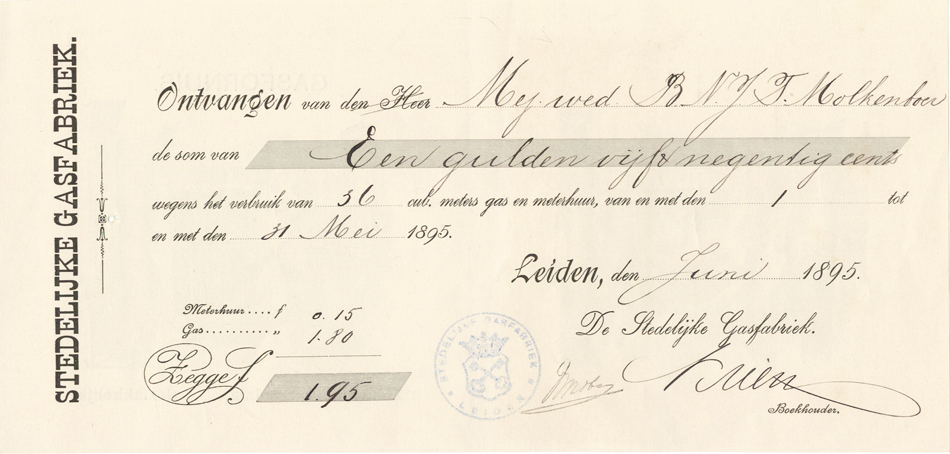 STEDELIJKE GASFABRIEK.
Ontvangen van den Heer Mej. wed B. N. J. T. Molkenboer
de som van Een gulden vijf & negentig cents
wegens het verbruik van 36 cub. meters gas en meterhuur, van en met den 1 tot
en met den 31 Mei 1895.
Leiden, den Juni 1895.
Meterhuur.... f 0.15
Gas.......... „ 1.80
De Stedelijke Gasfabriek.
Zegge f 1.95
STEDELIJKE GASFABRIEK
LEIDEN
Boekhouder.